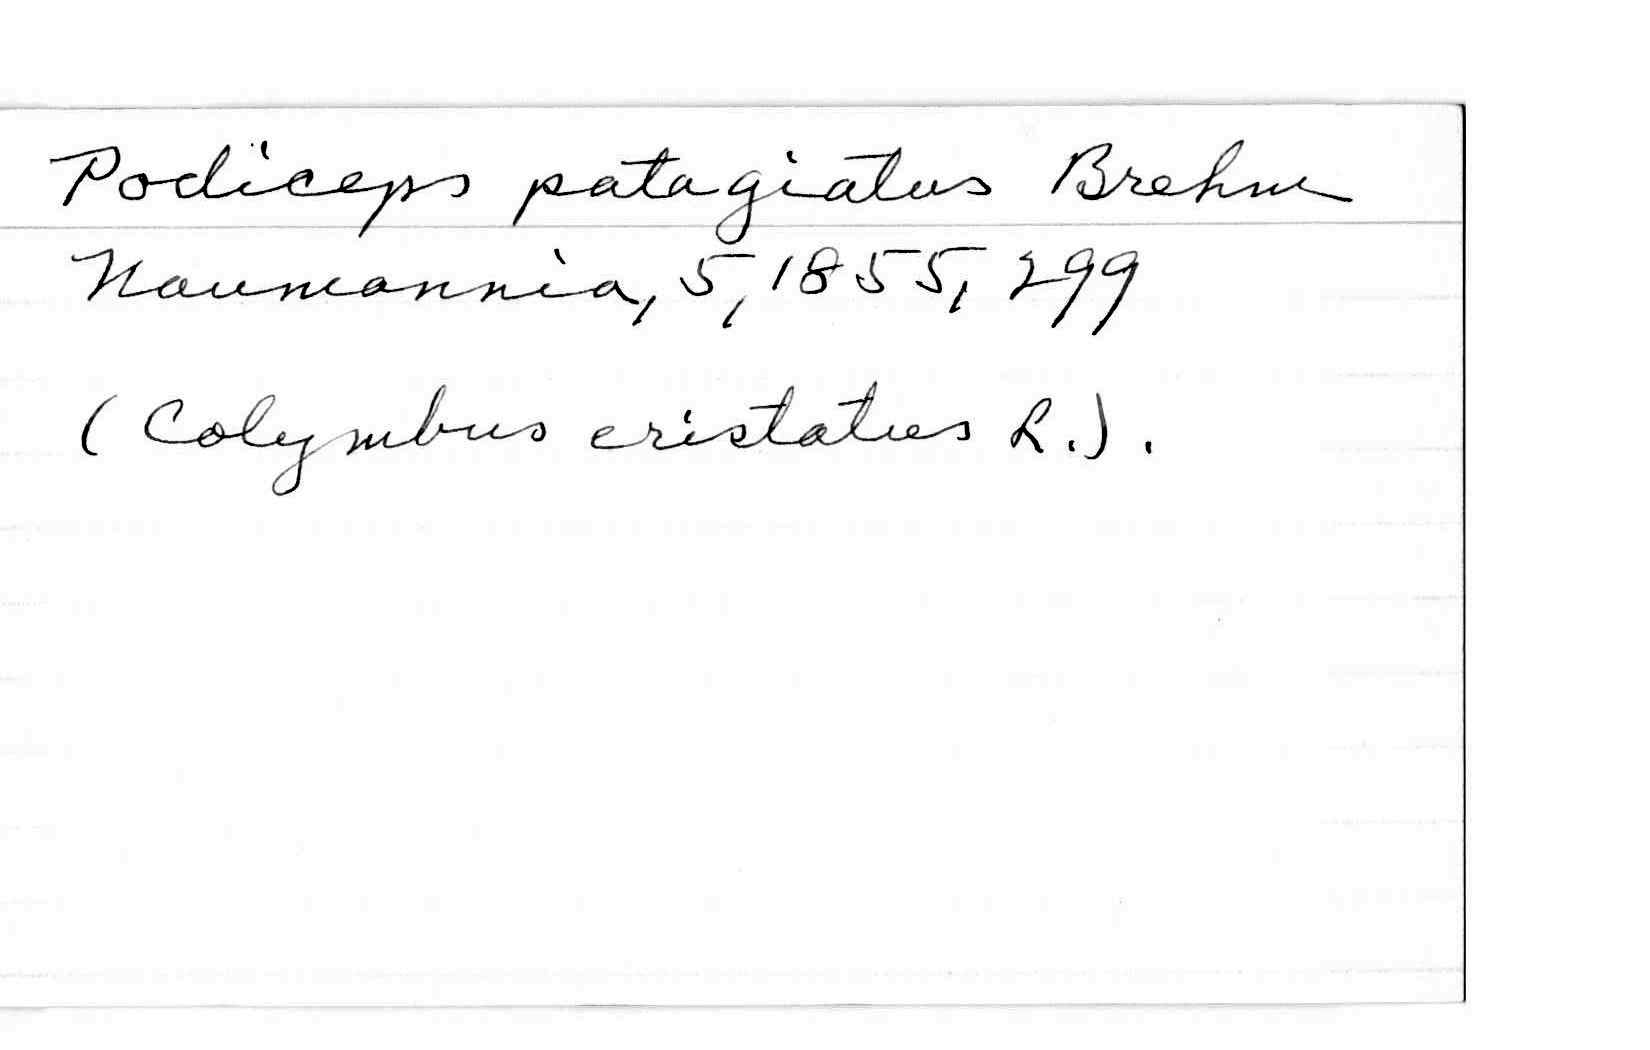 Podiceps patagiatus Brehm
Naumannia, 5, 1855, 299
(Colymbus cristatus L.).